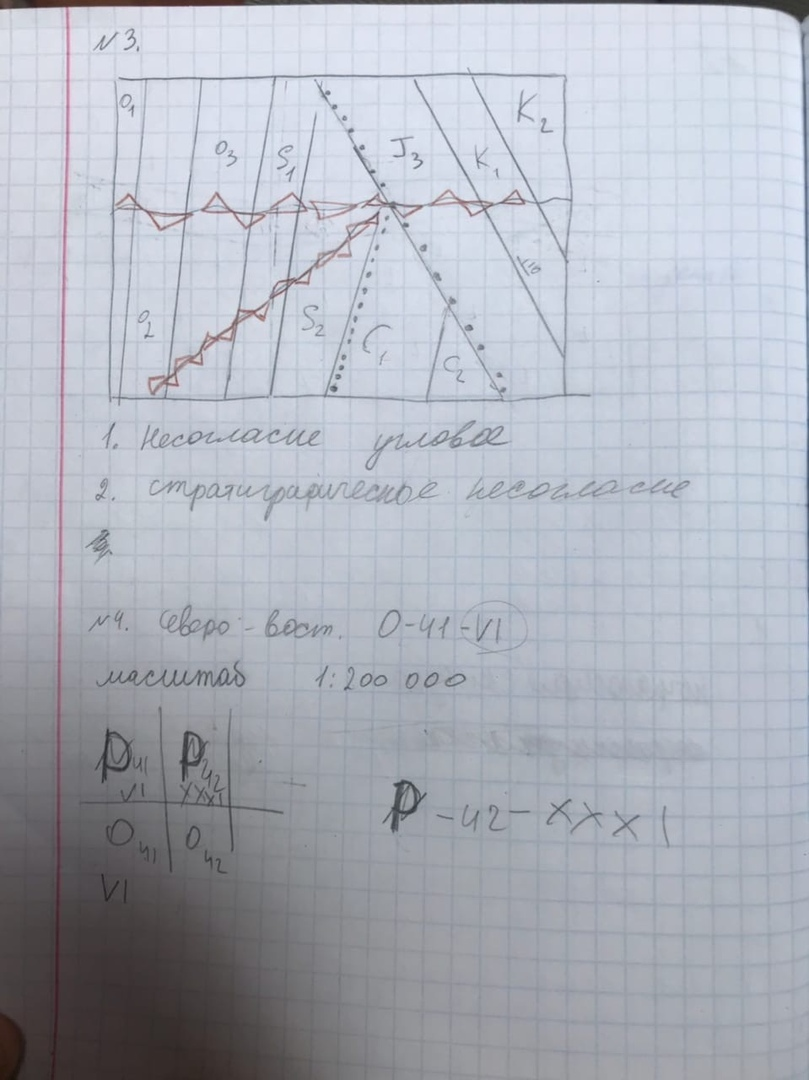 №3.
O₁ O₃ S₁ J₃ K₁ K₂
O₂ S₂ C₁ C₂ 10
1. Несогласие угловое
2. стратиграфическое несогласие
№4. Северо-вост. O-41-VI
масштаб 1:200 000
P₄₁ P₄₂
VI XXXI
O₄₁ O₄₂
VI
P-42-XXXI